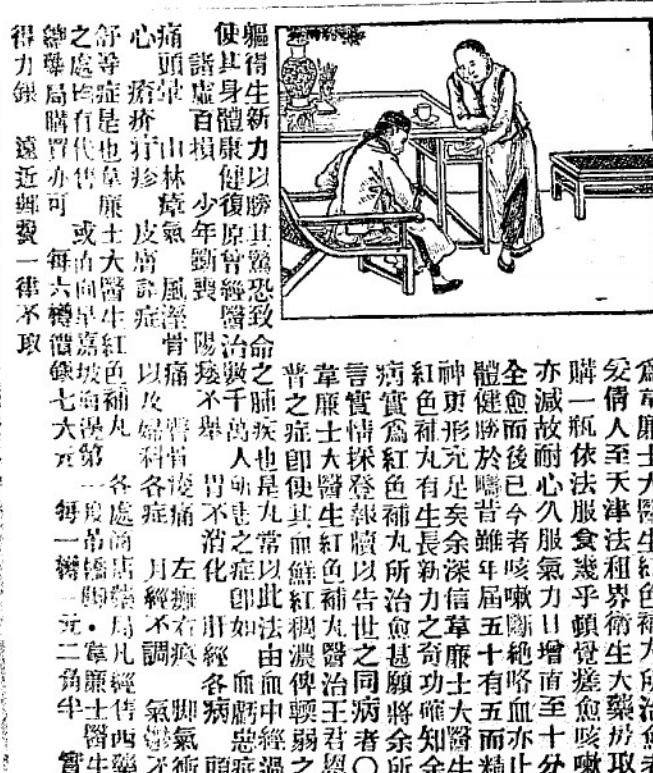 爲韋廉士大醫生紅色補丸所治愈者
爰倩人至天津法租界衛生大藥房取
購一瓶依法服食幾乎頓覺瘥愈咳嗽
亦減故耐心久服氣力日增直至十分
全愈而後已今者咳嗽斷絕咯血亦止
體健勝於疇昔雖年屆五十有五而精
神更形充足矣余深信韋廉士大醫生
紅色補丸有生長新力之奇功確知余
病實爲紅色補丸所治愈甚願將余所
言實情採登報牘以告世之同病者〇
韋廉士大醫生紅色補丸醫治王君恩
普之症卽使其血鮮紅稠濃俾輭弱之
軀得生新力以勝其驚恐致命之肺疾也是丸常以此法由血中經過
使其身體康健復原曾經醫治數千萬人所患之症卽如 血虧惡症
諸虛百損 少年斲喪 陽痿不舉 胃不消化 肝經各病 頭
痛頭暈 山林瘴氣 風溼骨痛 臂骨痠痛 左癱右瘓 脚氣衝
心 瘡疥疔疹 皮膚諸症 以及婦科各症 月經不調 氣鬱不
舒等症是也韋廉士大醫生紅色補丸 各處商店藥局凡經售西藥
之處均有代售 或直向星嘉坡海濱第一段吊橋脚・韋廉士醫生
總藥局購買亦可 每六樽價銀七大元 每一樽一元二角半 實
得力銀 遠近郵費一律不取